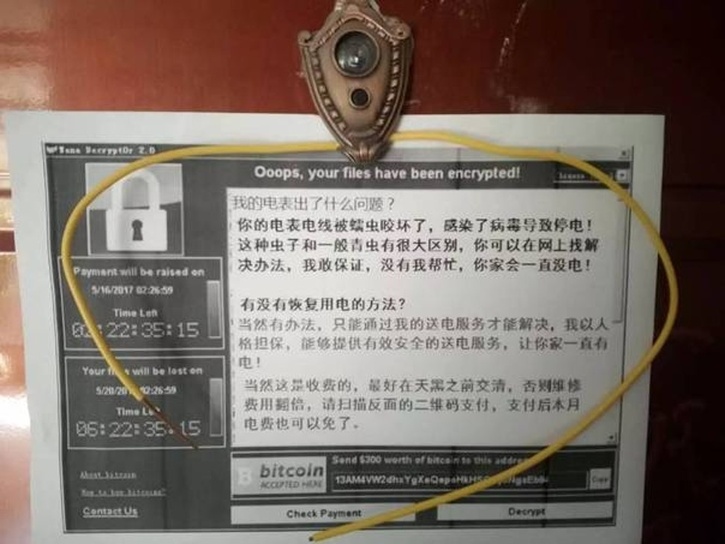 Wana Decrypt0r 2.0
Ooops, your files have been encrypted!
Payment will be raised on
5/16/2017 02:26:59
Time Left
02:22:35:15
Your files will be lost on
5/20/2017 02:26:59
Time Left
06:22:35:15
About bitcoin
How to buy bitcoins?
Contact Us
我的电表出了什么问题？
你的电表电线被蠕虫咬坏了，感染了病毒导致停电！
这种虫子和一般青虫有很大区别，你可以在网上找解
决办法，我敢保证，没有我帮忙，你家会一直没电！
有没有恢复用电的方法？
当然有办法，只能通过我的送电服务才能解决，我以人
格担保，能够提供有效安全的送电服务，让你家一直有
电！
当然这是收费的，最好在天黑之前交清，否则维修
费用翻倍，请扫描反面的二维码支付，支付后本月
电费也可以免了。
bitcoin
ACCEPTED HERE
Send $300 worth of bitcoin to this address
Copy
Check Payment
Decrypt